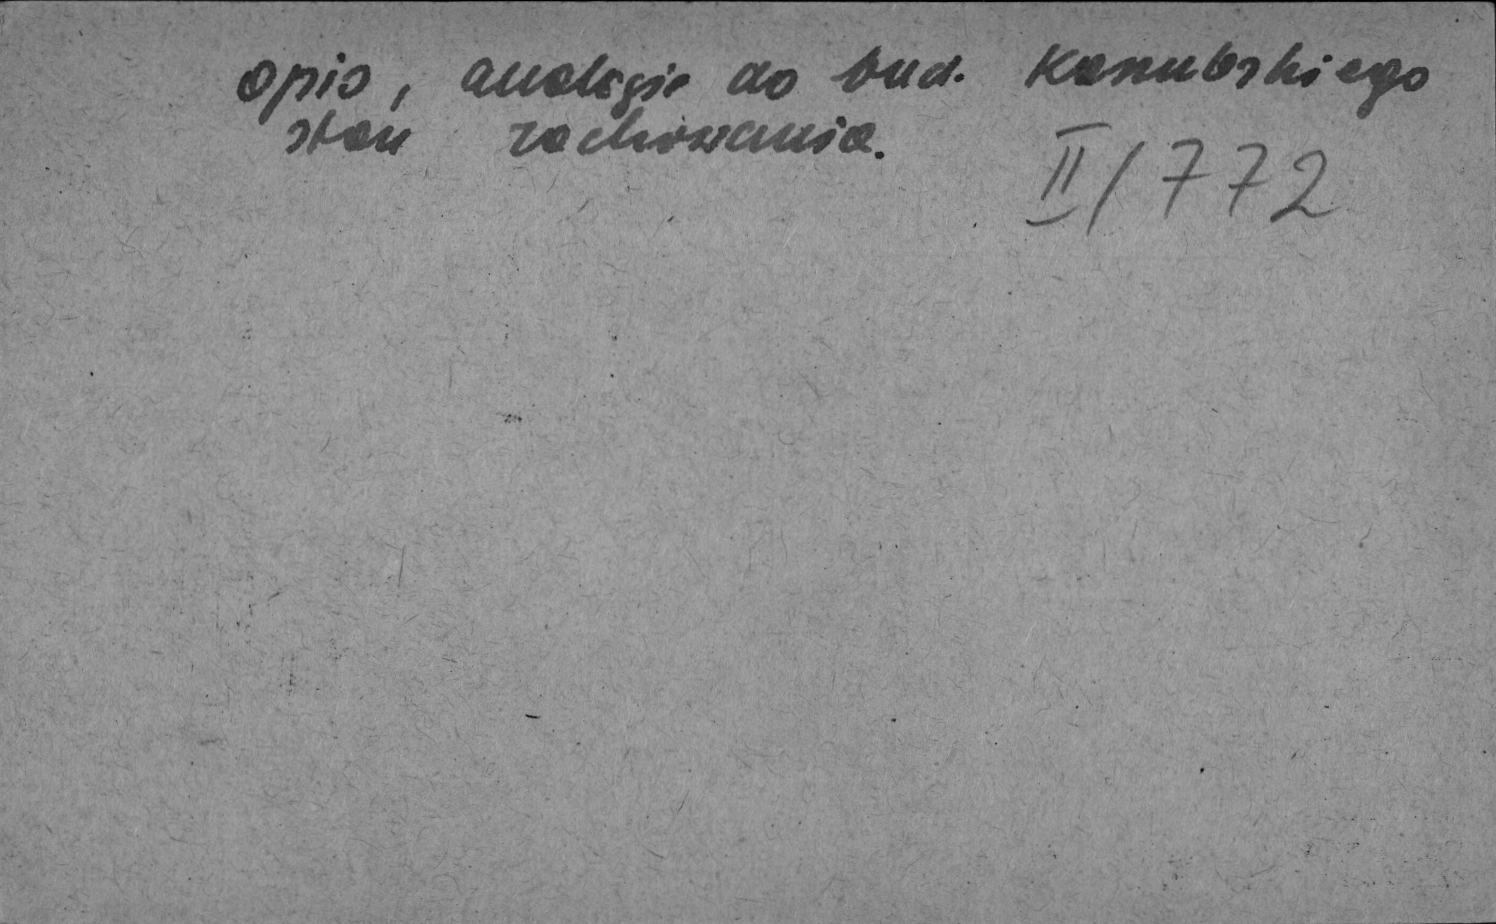 opis, analogie do bud. Kaszubskiego
stan zachowania.
II/772